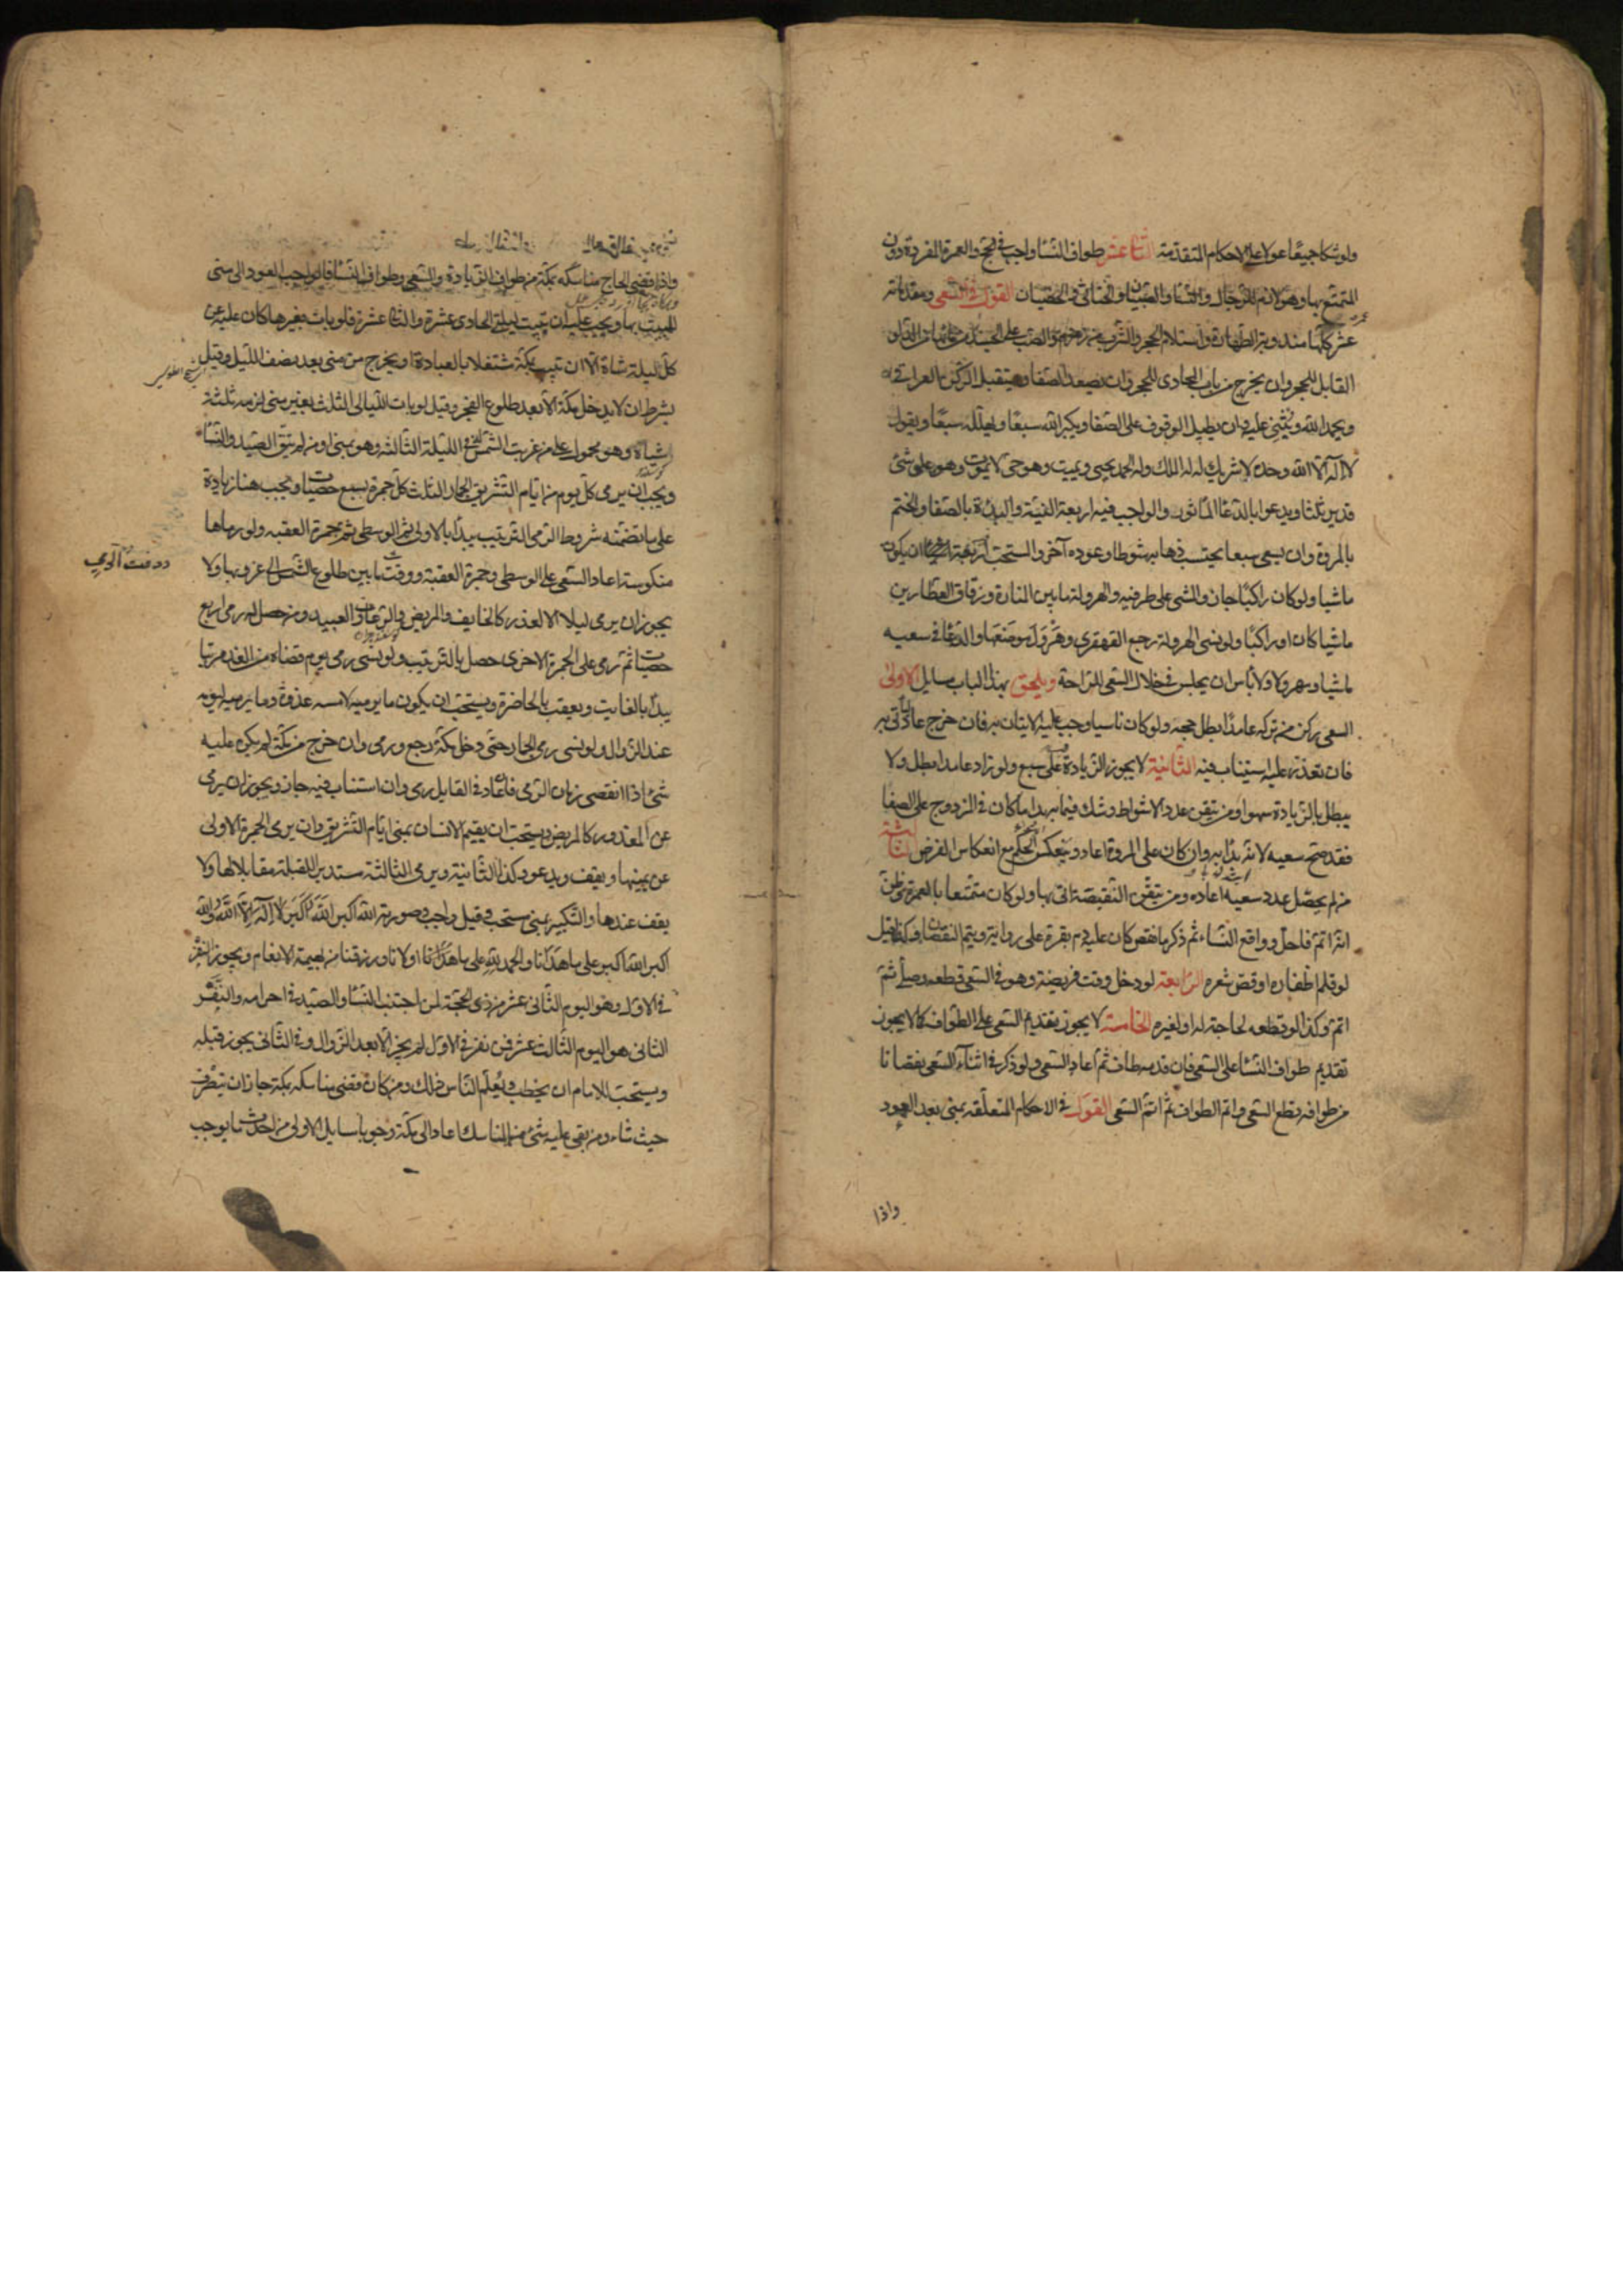 ولو شكا جميعًا عولا على الاحكام المتقدمة الثانى عشر طواف النسا واجب فى الحج والعمرة المفردة دون
المتمتع بها وهو لازم للرجال والنسا والصبيان والخناثى والخصيان القول فى السعى ومقدماته
عشرة كلها مندوبة الطهارة واستلام الحجر والشرب من زمزم والصب على الجسد من مائها من الدلو
المقابل للحجر وان يخرج من باب المحاذى للحجر وان يصعد الصفا ويستقبل الركن العراقى
ويحمد الله ويثنى عليه وان يطيل الوقوف على الصفا ويكبر الله سبعًا ويهلله سبعًا ويقول
لا اله الا الله وحده لا شريك له له الملك وله الحمد يحيى ويميت وهو حى لا يموت وهو على كل شئ
قدير ثلثا ويدعوا بالدعا الماثور والواجب فيه اربعة النية والبدءة بالصفا والختم
بالمروة وان يسعى سبعا يحتسب ذهابه شوطا وعوده آخر والمستحب اربعة ان يكون
ماشيا ولو كان راكبًا جاز والمشى على طرفيه والهرولة ما بين المنارة وزقاق العطارين
ماشيا كان او راكبًا ولو نسى الهرولة رجع القهقرى وهرول موضعها والدعا فى سعيه
ماشيا ومهرولا ولا بأس ان يجلس فى خلال السعى للراحة ويلحق بهذا الباب مسايل الاولى
السعى ركن من تركه عامدًا بطل حجه ولو كان ناسيا وجب عليه الاتيان به فان خرج عاد لياتى به
فان تعذر عليه استناب فيه الثانية لا يجوز الزيادة على سبع ولو زاد عامدا بطل ولا
يبطل بالزيادة سهوا ومن تيقن عدد الاشواط وشك فيما به بدا فان كان فى المزدوج على الصفا
فقد صح سعيه لانه بدأ به وان كان على المروة اعاد وينعكس الحكم مع انعكاس الفرض الثالثة
من لم يحصل عدد سعيه اعاده ومن تيقن النقيصة اتى بها ولو كان متمتعا بالعمرة وظن
انه اتم فاحل وواقع النساء ثم ذكر ما نقص كان عليه دم بقرة على رواية ويتم النقصان وكذا قيل
لو قلم اظفاره او قص شعره الرابعة لو دخل وقت فريضة وهو فى السعى قطعه وصلى ثم
اتمه وكذا لو قطعه لحاجة له او لغيره الخامسة لا يجوز تقديم السعى على الطواف كما لا يجوز
تقديم طواف النسا على السعى فان قدمه طاف ثم اعاد السعى ولو ذكر فى اثناء السعى نقصانا
من طوافه قطع السعى واتم الطواف ثم اتم السعى القول فى الاحكام المتعلقه بمنى بعد العود
واذا
واذا قضى الحاج مناسكه بمكة من طواف الزيادة والسعى وطواف النسا فالواجب العود الى منى
للمبيت بها ويجب عليه ان يبيت ليلة الحادى عشرة والثانى عشرة فلو بات بغيرها كان عليه عن
كل ليلة شاة الا ان يبيت بمكة مشتغلا بالعبادة او يخرج من منى بعد نصف الليل وقيل
بشرط ان لا يدخل مكة الا بعد طلوع الفجر وقيل لو بات الليالى الثلث بغير منى لزمه ثلثة
شياه وهو محمول على من غربت الشمس فى الليلة الثالثه وهو بمنى او من لم يتق الصيد والنسا
ويجب ان يرمى كل يوم من ايام التشريق الجمار الثلث كل جمرة بسبع حصيات ويجب هنا زيادة
على ما تضمنه شروط الرمى الترتيب يبدأ بالاولى ثم الوسطى ثم جمرة العقبه ولو رماها
منكوسة اعاد السعى على الوسطى وجمرة العقبة ووقت ما بين طلوع الشمس الى غروبها ولا
يجوز ان يرمى ليلا الا لعذر كالخايف والمريض والرعاة والعبيد ومن حصل له رمى اربع
حصيات ثم رمى على الجمرة الاخرى حصل بالترتيب ولو نسى رمى يوم قضاه من الغد مرتبا
يبدأ بالفايت ويعقب بالحاضرة ويستحب ان يكون ما يرميه لامسه غدوة وما يرميه ليومه
عند الزوال ولو نسى رمى الجمار حتى دخل مكة رجع ورمى وان خرج من مكة لم يكن عليه
شئ اذا انقضى زمان الرمى فان عاد فى القابل رمى وان استناب فيه جاز ويجوز ان يرمى
عن المعذور كالمريض ويستحب ان يقيم الانسان بمنى ايام التشريق وان يرمى الجمرة الاولى
عن يمينها ويقف ويدعو وكذا الثانية ويرمى الثالثة مستدبر القبلة مقابلا لها ولا
يقف عندها والتكبير بمنى مستحب وقيل واجب وصورته الله اكبر الله اكبر لا اله الا الله والله
اكبر الله اكبر على ما هدانا والحمد لله على ما هدانا اولانا ورزقنا من بهيمة الانعام ويجوز النفر
فى الاول وهو اليوم الثانى عشر من ذى الحجة لمن اجتنب النسا والصيد فى احرامه والنفر
الثانى هو اليوم الثالث عشر فمن نفر فى الاول لم يجز الا بعد الزوال وفى الثانى يجوز قبله
ويستحب للامام ان يخطب ويعلم الناس ذلك ومن كان قضى مناسكه بمكة جاز ان ينصرف
حيث شاء ومن بقى عليه شئ من المناسك اعاد الى مكة وجوبا مسايل الاولى من احدث ما يوجب